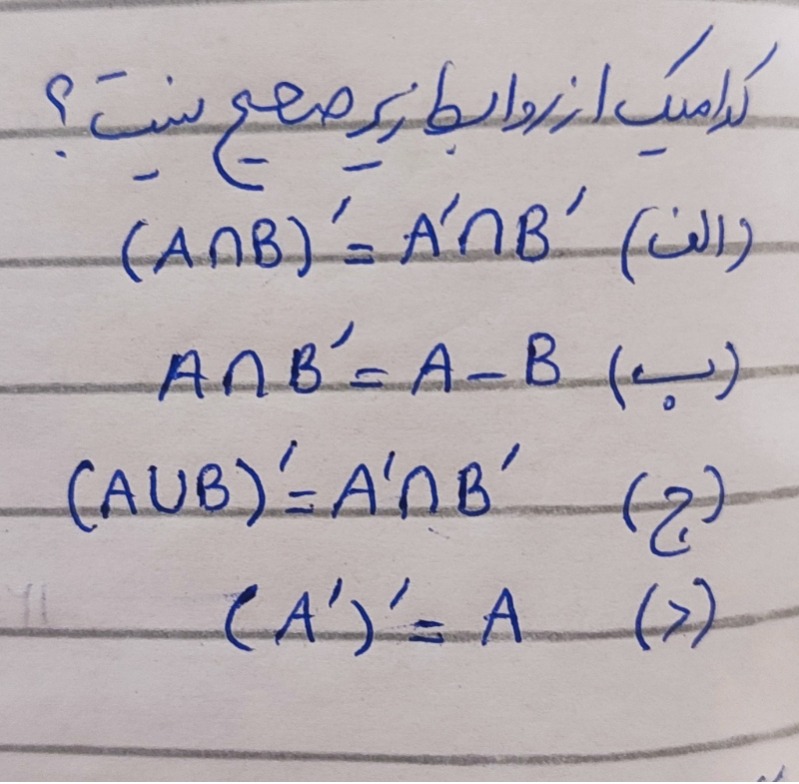 کدامیک از روابط زیر صحیح نیست؟
الف) (A∩B)′ = A′∩B′
ب) A∩B′ = A − B
ج) (A∪B)′ = A′∩B′
د) (A′)′ = A